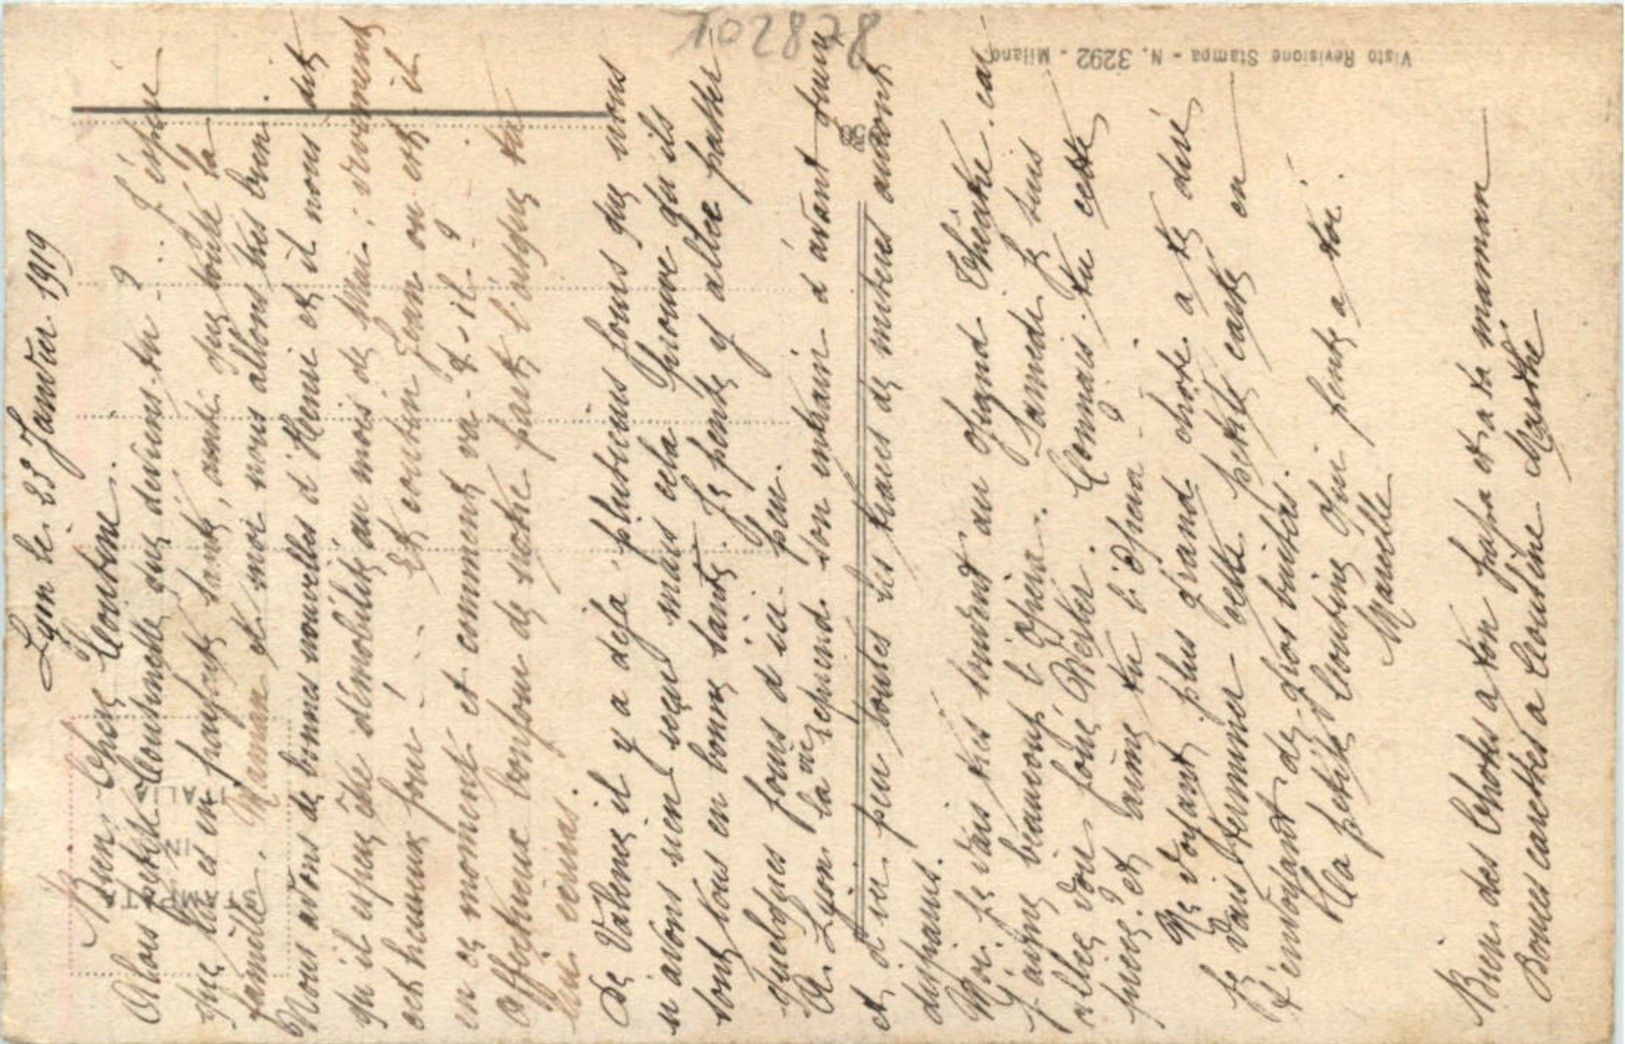 Lyon le 23 Janvier 1919
Bien Chère Cousine.
Alors petite Cousinette que deviens-tu ? J'espère
que tu es en parfaite santé, ainsi que toute ta
famille. Maman et moi nous allons très bien.
Nous avons de bonnes nouvelles d'Henri et il nous dit
qu'il espère être démobilisé au mois de Mai : vraiment
cet heureux jour ! .. Et cousin Jean ou est-il
en ce moment et comment va-t-il ?
Affectueux bonjour de notre part lorsque tu
lui écriras.
De Valence il y a déjà plusieurs jours que nous
n'avons rien reçu mais cela prouve qu'ils
sont tous en bonne santé. Je pense y aller passer
quelques jours d'ici peu.
A Lyon la vie reprend son entrain d'avant guerre
et d'ici peu toutes les traces de misères auront
disparus.
Moi je vais très souvent au Grand Théâtre car
j'aime beaucoup l'Opéra. Samedi je suis
allée voir jouer Werther. Connais-tu cette
pièce et aime tu l'Opéra ?
Ne voyant plus grand chose a te dire
je vais terminer cette petite carte en
t'envoyant de gros baisers.
Ta petite Cousine qui pense a toi.
Marcelle
Bien des choses a ton papa et a ta maman
Bonnes caresses a Cousine Marthe
102878
Visto Revisione Stampa - N. 3292 - Milano.
STAMPATA
IN
ITALIA